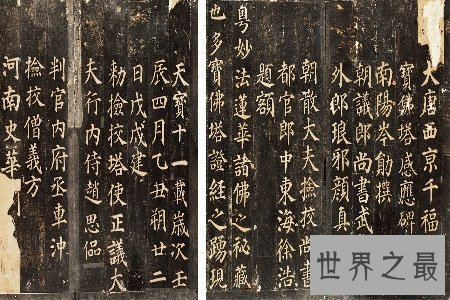 大唐西京千福
寶佛塔感應碑
南陽岑勛撰
朝議郎尚書武
外郎琅邪顏真
朝散大夫撿校尚書
都官郎中東海徐浩
題額
粵妙法蓮華諸佛之秘藏
也多寶佛塔證經之踴現
天寶十一載歲次壬
辰四月乙丑朔廿二
日戊戌建
勑撿校塔使正議大
夫行内侍趙思偘
判官内府丞車沖
撿校僧義方
河南史華
世界之最